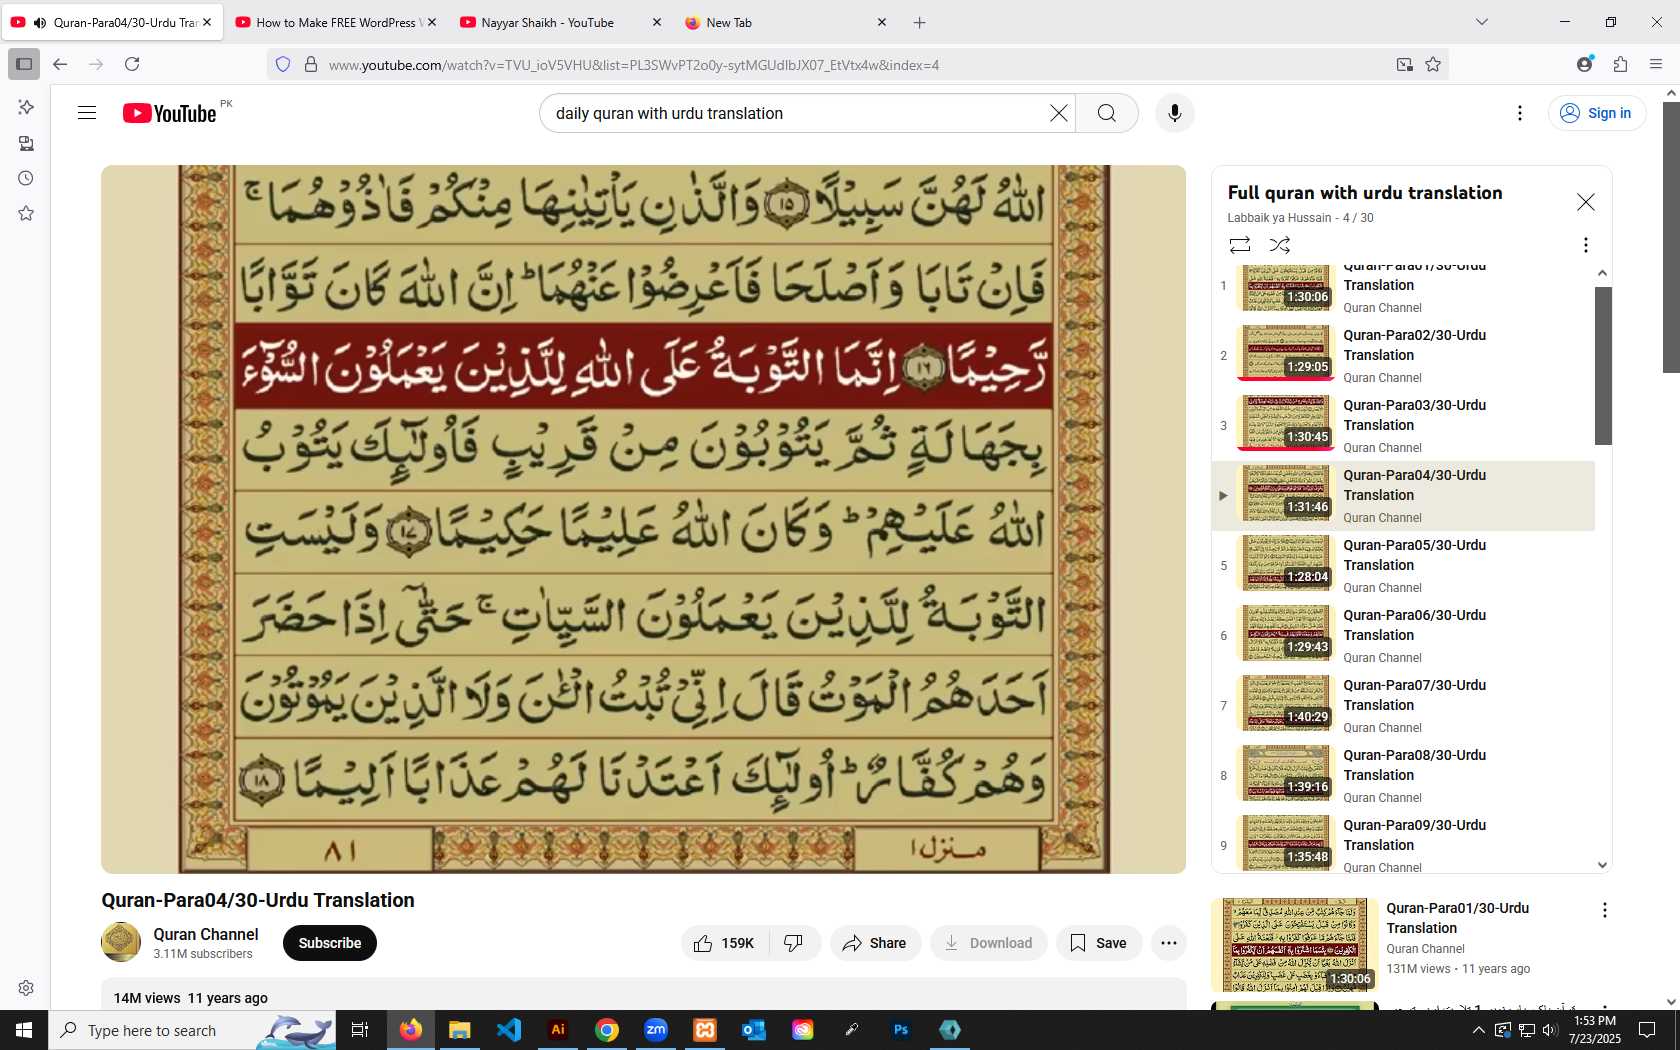 Quran-Para04/30-Urdu Tran
How to Make FREE WordPress W
Nayyar Shaikh - YouTube
New Tab
www.youtube.com/watch?v=TVU_ioV5VHU&list=PL3SWvPT2o0y-sytMGUdlbJX07_EtVtx4w&index=4
YouTube PK
daily quran with urdu translation
Sign in
اللّٰهُ لَهُنَّ سَبِيْلًا ۝۱۵ وَالَّذٰنِ يَاْتِيٰنِهَا مِنْكُمْ فَاٰذُوْهُمَا ۚ
فَاِنْ تَابَا وَاَصْلَحَا فَاَعْرِضُوْا عَنْهُمَا ؕ اِنَّ اللّٰهَ كَانَ تَوَّابًا
رَّحِيْمًا ۝۱۶ اِنَّمَا التَّوْبَةُ عَلَى اللّٰهِ لِلَّذِيْنَ يَعْمَلُوْنَ السُّوْٓءَ
بِجَهَالَةٍ ثُمَّ يَتُوْبُوْنَ مِنْ قَرِيْبٍ فَاُولٰٓئِكَ يَتُوْبُ
اللّٰهُ عَلَيْهِمْ ؕ وَكَانَ اللّٰهُ عَلِيْمًا حَكِيْمًا ۝۱۷ وَلَيْسَتِ
التَّوْبَةُ لِلَّذِيْنَ يَعْمَلُوْنَ السَّيِّاٰتِ ۚ حَتّٰٓى اِذَا حَضَرَ
اَحَدَهُمُ الْمَوْتُ قَالَ اِنِّىْ تُبْتُ الْـٰٔنَ وَلَا الَّذِيْنَ يَمُوْتُوْنَ
وَهُمْ كُفَّارٌ ؕ اُولٰٓئِكَ اَعْتَدْنَا لَهُمْ عَذَابًا اَلِيْمًا ۝۱۸
منزل ۱
۸۱
Quran-Para04/30-Urdu Translation
Quran Channel
3.11M subscribers
Subscribe
159K
Share
Download
Save
14M views 11 years ago
Full quran with urdu translation
Labbaik ya Hussain - 4 / 30
1
1:30:06
Quran-Para01/30-Urdu
Translation
Quran Channel
2
1:29:05
Quran-Para02/30-Urdu
Translation
Quran Channel
3
1:30:45
Quran-Para03/30-Urdu
Translation
Quran Channel
1:31:46
Quran-Para04/30-Urdu
Translation
Quran Channel
5
1:28:04
Quran-Para05/30-Urdu
Translation
Quran Channel
6
1:29:43
Quran-Para06/30-Urdu
Translation
Quran Channel
7
1:40:29
Quran-Para07/30-Urdu
Translation
Quran Channel
8
1:39:16
Quran-Para08/30-Urdu
Translation
Quran Channel
9
1:35:48
Quran-Para09/30-Urdu
Translation
Quran Channel
1:30:06
Quran-Para01/30-Urdu
Translation
Quran Channel
131M views • 11 years ago
Type here to search
Ai
zm
Ps
1:53 PM
7/23/2025